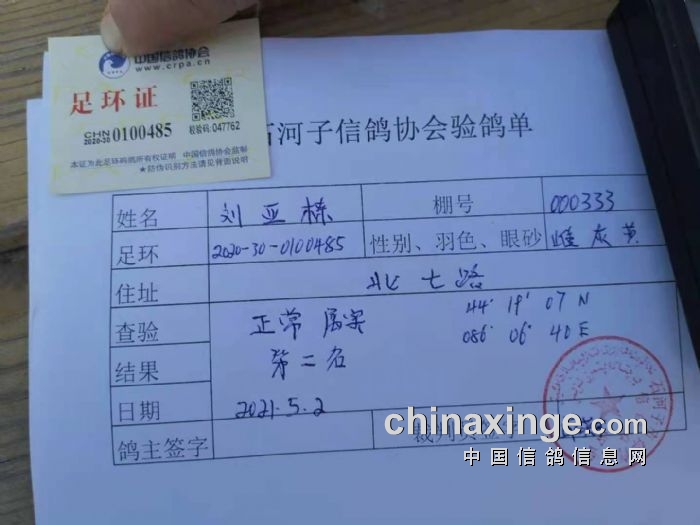 中国信鸽协会
www.crpa.cn
足环证
CHN
2020-30 0100485 校验码:047762
本证为此足环码鸽所有权证明 中国信鸽协会监制
★防伪识别方法请见背面说明
石河子信鸽协会验鸽单
姓名 刘亚栋 棚号 000333
足环 2020-30-0100485 性别、羽色、眼砂 雌 灰 黄
住址 北七路
查验 正常 属实 44° 19' 07 N
086° 06' 40 E
结果 第二名
日期 2021.5.2
鸽主签字 裁判员签字
chinaxinge.com
中国信鸽信息网